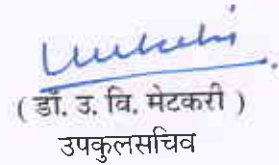 ( डॉ. उ. वि. मेटकरी )
उपकुलसचिव